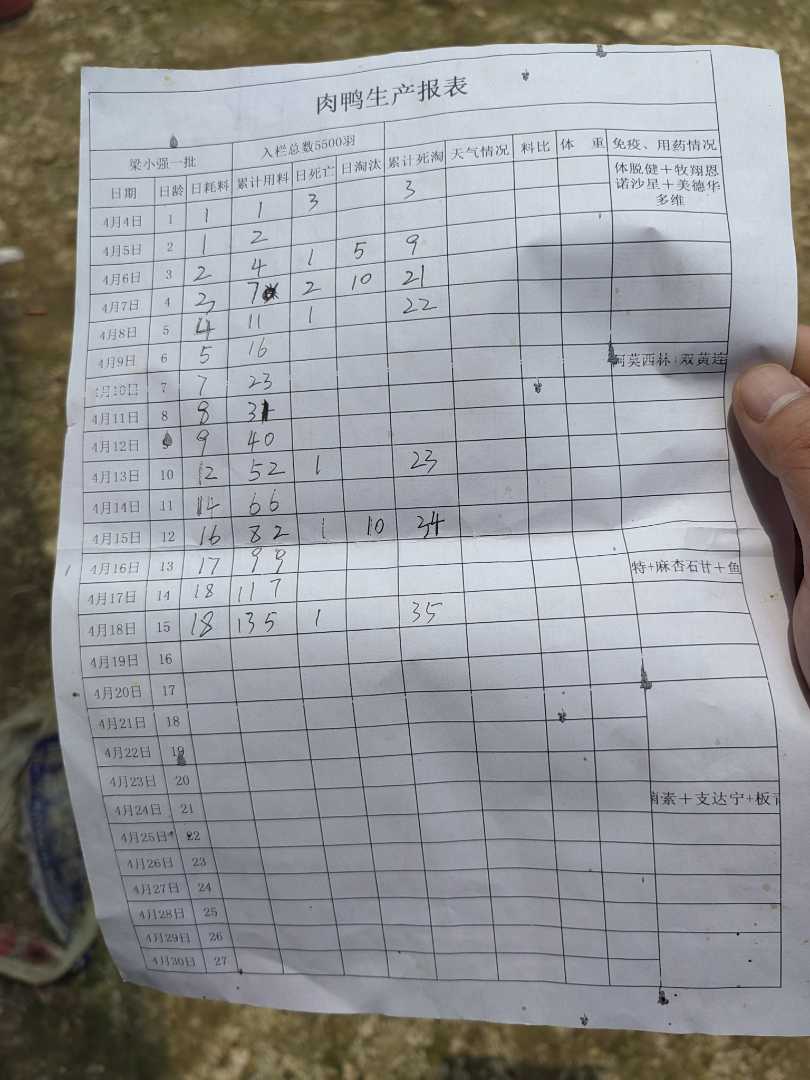 肉鸭生产报表
梁小强一批 入栏总数5500羽
日期 日龄 日耗料 累计用料 日死亡 日淘汰 累计死淘 天气情况 料比 体 重 免疫、用药情况
4月4日 1 1 1 3 3 体脱健＋牧翔恩
诺沙星＋美德华
多维
4月5日 2 1 2
4月6日 3 2 4 1 5 9
4月7日 4 3 7 2 10 21
4月8日 5 4 11 1 22
4月9日 6 5 16 阿莫西林+双黄连
4月10日 7 7 23
4月11日 8 8 31
4月12日 9 9 40
4月13日 10 12 52 1 23
4月14日 11 14 66
4月15日 12 16 82 1 10 34
4月16日 13 17 99 特+麻杏石甘＋鱼
4月17日 14 18 117
4月18日 15 18 135 1 35
4月19日 16
4月20日 17
4月21日 18
4月22日 19
4月23日 20
4月24日 21 素＋支达宁+板
4月25日 22
4月26日 23
4月27日 24
4月28日 25
4月29日 26
4月30日 27